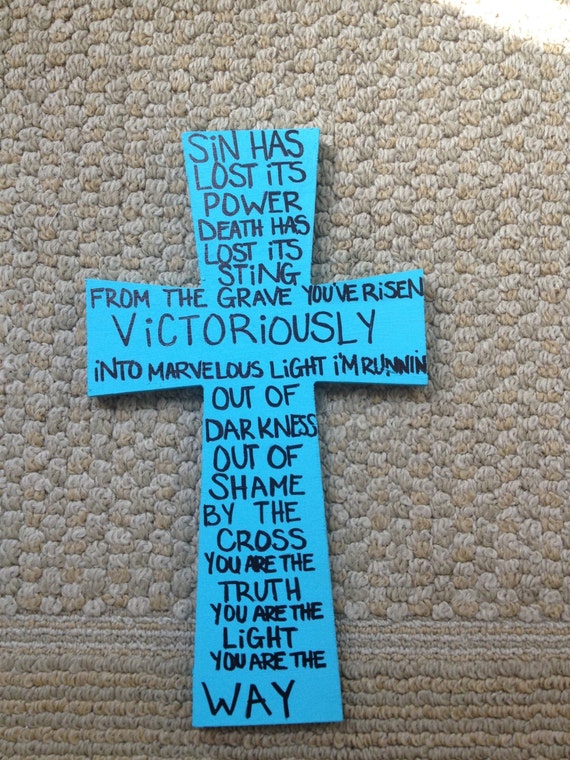 SiN HAS
LOST iTS
POWER
DEATH HAS
LOST iTS
STiNG
FROM THE GRAVE YOU'VE RiSEN
ViCTORiOUSLY
iNTO MARVELOUS LiGHT i'M RUNNiN
OUT OF
DARKNESS
OUT OF
SHAME
BY THE
CROSS
YOU ARE THE
TRUTH
YOU ARE THE
LiGHT
YOU ARE THE
WAY